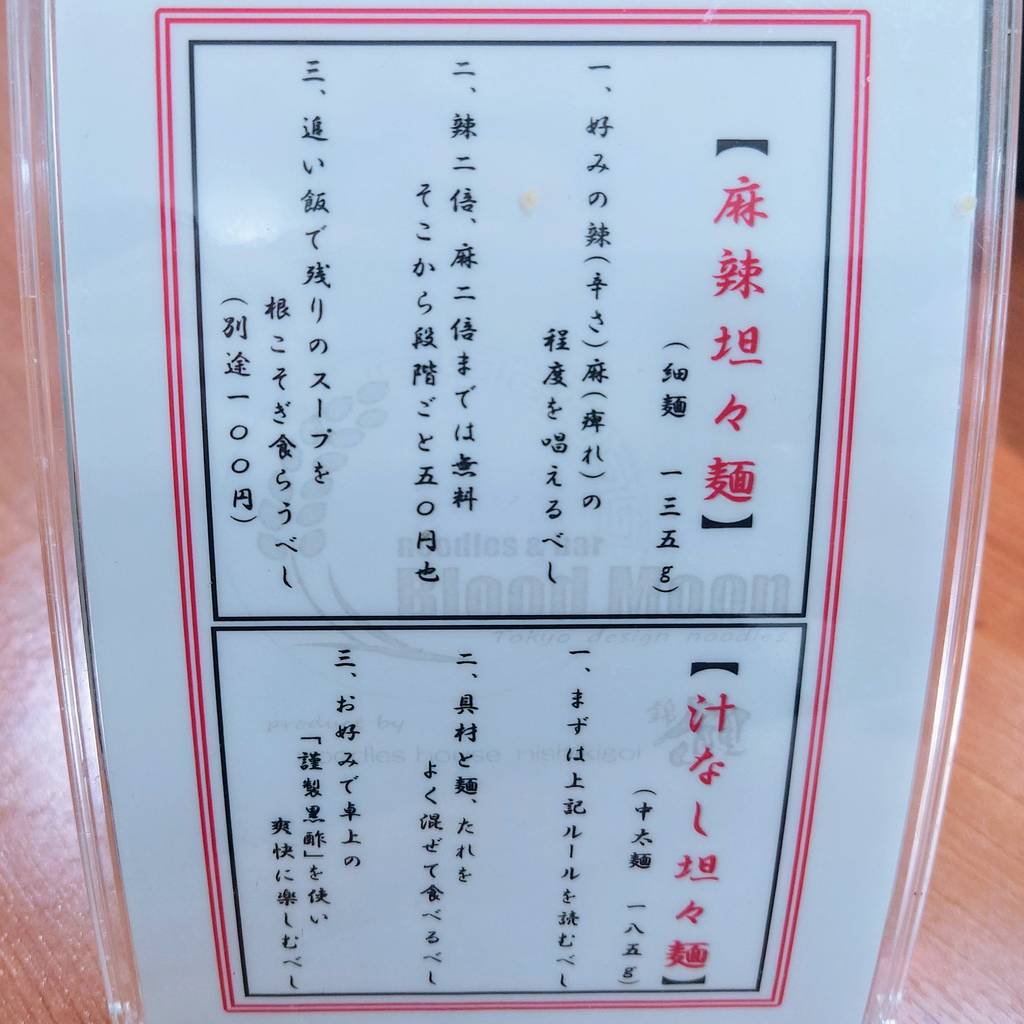 【麻辣坦々麺】
（細麺　一三五g）
一、好みの辣（辛さ）麻（痺れ）の
程度を唱えるべし
二、辣二倍、麻二倍までは無料
そこから段階ごと五〇円也
三、追い飯で残りのスープを
根こそぎ食らうべし
（別途一〇〇円）
【汁なし坦々麺】
（中太麺　一八五g）
一、まずは上記ルールを読むべし
二、具材と麺、たれを
よく混ぜて食べるべし
三、お好みで卓上の
「謹製黒酢」を使い
爽快に楽しむべし
noodles & bar
Blood Moon
Tokyo design noodles
produce by
noodles house nishikigoi
錦鯉